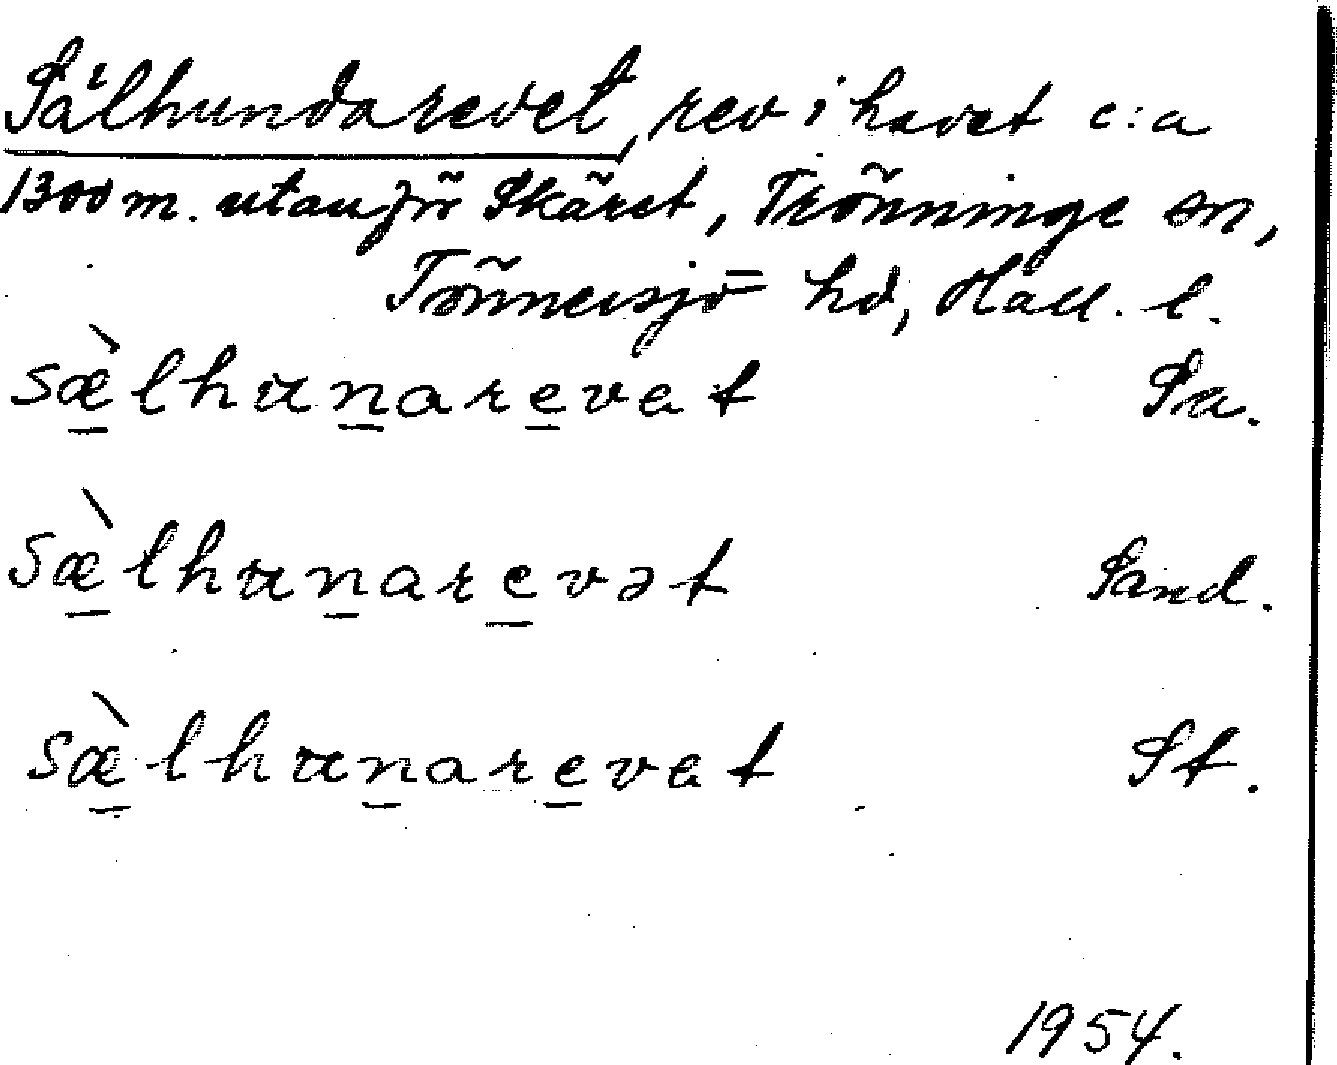 Sälhundarevet, rev i havet c:a
1300 m. utanför Skäret, Trönninge sn,
Tönnersjö hd, Hall. l.
sæ̀lhunarevet Pa.
sæ̀lhunarevət Sand.
sæ̀lhunarevet St.
1954.